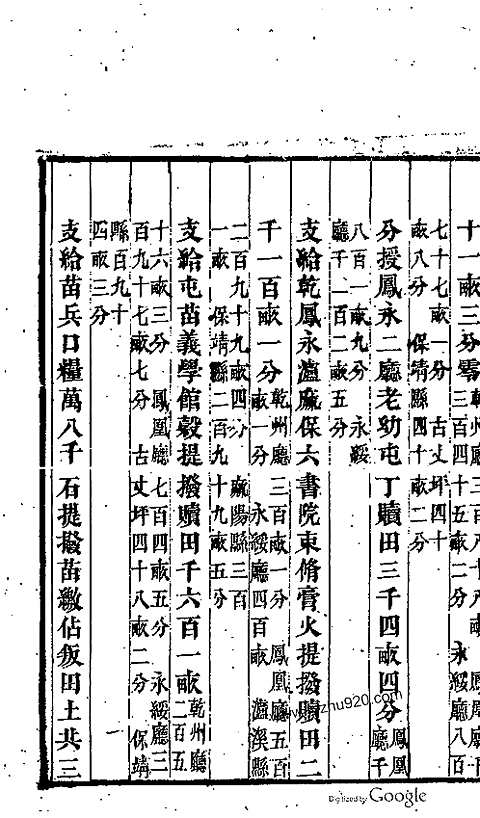 十一畝三分零
三百四十五畝二分　永綏廳八百
七十七畝一分　古丈坪四十
畝八分　保靖縣四十畝二分
分授鳳永二廳老幼屯丁贖田三千四畝四分鳳凰
廳千
八百一畝九分　永綏
廳千一百二畝五分
支給乾鳳永瀘麻保六書院束脩膏火提撥贖田二
千一百畝一分乾州廳三百畝一分　鳳凰廳五百
畝一分　永綏廳四百畝　瀘溪縣
二百九十九畝四分　麻陽縣三百
一畝　保靖縣二百九十九畝五分
支給屯苗義學館穀提撥贖田千六百一畝乾州廳
二百五
十六畝三分　鳳凰廳七百四畝五分　永綏廳三
百九十七畝七分　古丈坪四十八畝二分　保靖
縣百九十
四畝三分
支給苗兵口糧萬八千石提撥苗繳佔叛田土共三
zhu920.com
Digitized by Google